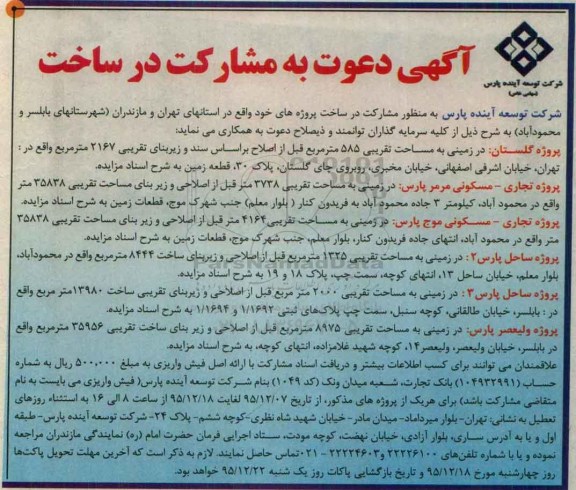 آگهی دعوت به مشارکت در ساخت
شرکت توسعه آینده پارس
(سهامی خاص)
شرکت توسعه آینده پارس به منظور مشارکت در ساخت پروژه های خود واقع در استانهای تهران و مازندران (شهرستانهای بابلسر و
محمودآباد) به شرح ذیل از کلیه سرمایه گذاران توانمند و ذیصلاح دعوت به همکاری می نماید:
پروژه گلستان: در زمینی به مساحت تقریبی ۵۸۵ مترمربع قبل از اصلاح براساس سند و زیربنای تقریبی ۲۱۶۷ مترمربع واقع در :
تهران، خیابان اشرفی اصفهانی، خیابان مخبری، روبروی چای گلستان، پلاک ۳۰، قطعه زمین به شرح اسناد مزایده.
پروژه تجاری - مسکونی مرمر پارس: در زمینی به مساحت تقریبی ۳۷۳۸ متر قبل از اصلاحی و زیر بنای مساحت تقریبی ۳۵۸۳۸ متر
واقع در محمود آباد، کیلومتر ۳ جاده محمود آباد به فریدون کنار ( بلوار معلم) جنب شهرک موج، قطعات زمین به شرح اسناد مزایده.
پروژه تجاری - مسکونی موج پارس: در زمینی به مساحت تقریبی ۴۱۶۴ متر قبل از اصلاحی و زیر بنای مساحت تقریبی ۳۵۸۳۸
متر واقع در محمود آباد، انتهای جاده فریدون کنار، بلوار معلم، جنب شهرک موج، قطعات زمین به شرح اسناد مزایده.
پروژه ساحل پارس۲ : در زمینی به مساحت تقریبی ۱۳۲۵ مترمربع قبل از اصلاحی و زیربنای ساخت ۸۴۴۴ مترمربع واقع در محمودآباد،
بلوار معلم، خیابان ساحل ۱۳، انتهای کوچه، سمت چپ، پلاک ۱۸ و ۱۹ به شرح اسناد مزایده.
پروژه ساحل پارس۳ : در زمینی به مساحت تقریبی ۲۰۰۰ متر مربع قبل از اصلاحی و زیربنای تقریبی ساخت ۱۳۹۸۰متر مربع واقع
در : بابلسر، خیابان طالقانی، کوچه سنبل، سمت چپ پلاک‌های ثبتی ۱/۱۶۹۲ و ۱/۱۶۹۴ به شرح اسناد مزایده.
پروژه ولیعصر پارس: در زمینی به مساحت تقریبی ۸۹۷۵ مترمربع قبل از اصلاحی و زیر بنای ساخت تقریبی ۳۵۹۵۶ مترمربع واقع
در بابلسر، خیابان ولیعصر، ولیعصر۱۴، کوچه شهید غلامزاده، انتهای کوچه، به شرح اسناد مزایده.
علاقمندان می توانند برای کسب اطلاعات بیشتر و دریافت اسناد مشارکت با ارائه اصل فیش واریزی به مبلغ ۵۰۰،۰۰۰ ریال به شماره
حساب (۱۰۴۹۳۲۹۹۱) بانک تجارت، شعبه میدان ونک (کد ۱۰۴۹) بنام شرکت توسعه آینده پارس( فیش واریزی می بایست به نام
متقاضی مشارکت باشد) برای هریک از پروژه های مذکور، از تاریخ ۹۵/۱۲/۰۷ لغایت ۹۵/۱۲/۱۸ از ساعت ۸ الی ۱۶ به استثناء روزهای
تعطیل به نشانی: تهران- بلوار میرداماد- میدان مادر- خیابان شهید شاه نظری-کوچه ششم- پلاک ۲۴- شرکت توسعه آینده پارس- طبقه
اول و یا به آدرس ساری، بلوار آزادی، خیابان نهضت، کوچه مودت، ستاد اجرایی فرمان حضرت امام (ره) نمایندگی مازندران مراجعه
نموده و یا با شماره تلفن‌های ۲۲۲۲۶۱۰۰ و ۲۲۲۲۴۶۰۳ - ۰۲۱تماس حاصل نمایند. لازم به ذکر است که آخرین مهلت تحویل پاکت‌ها
روز چهارشنبه مورخ ۹۵/۱۲/۱۸ و تاریخ بازگشایی پاکات روز یک شنبه ۹۵/۱۲/۲۲ خواهد بود.